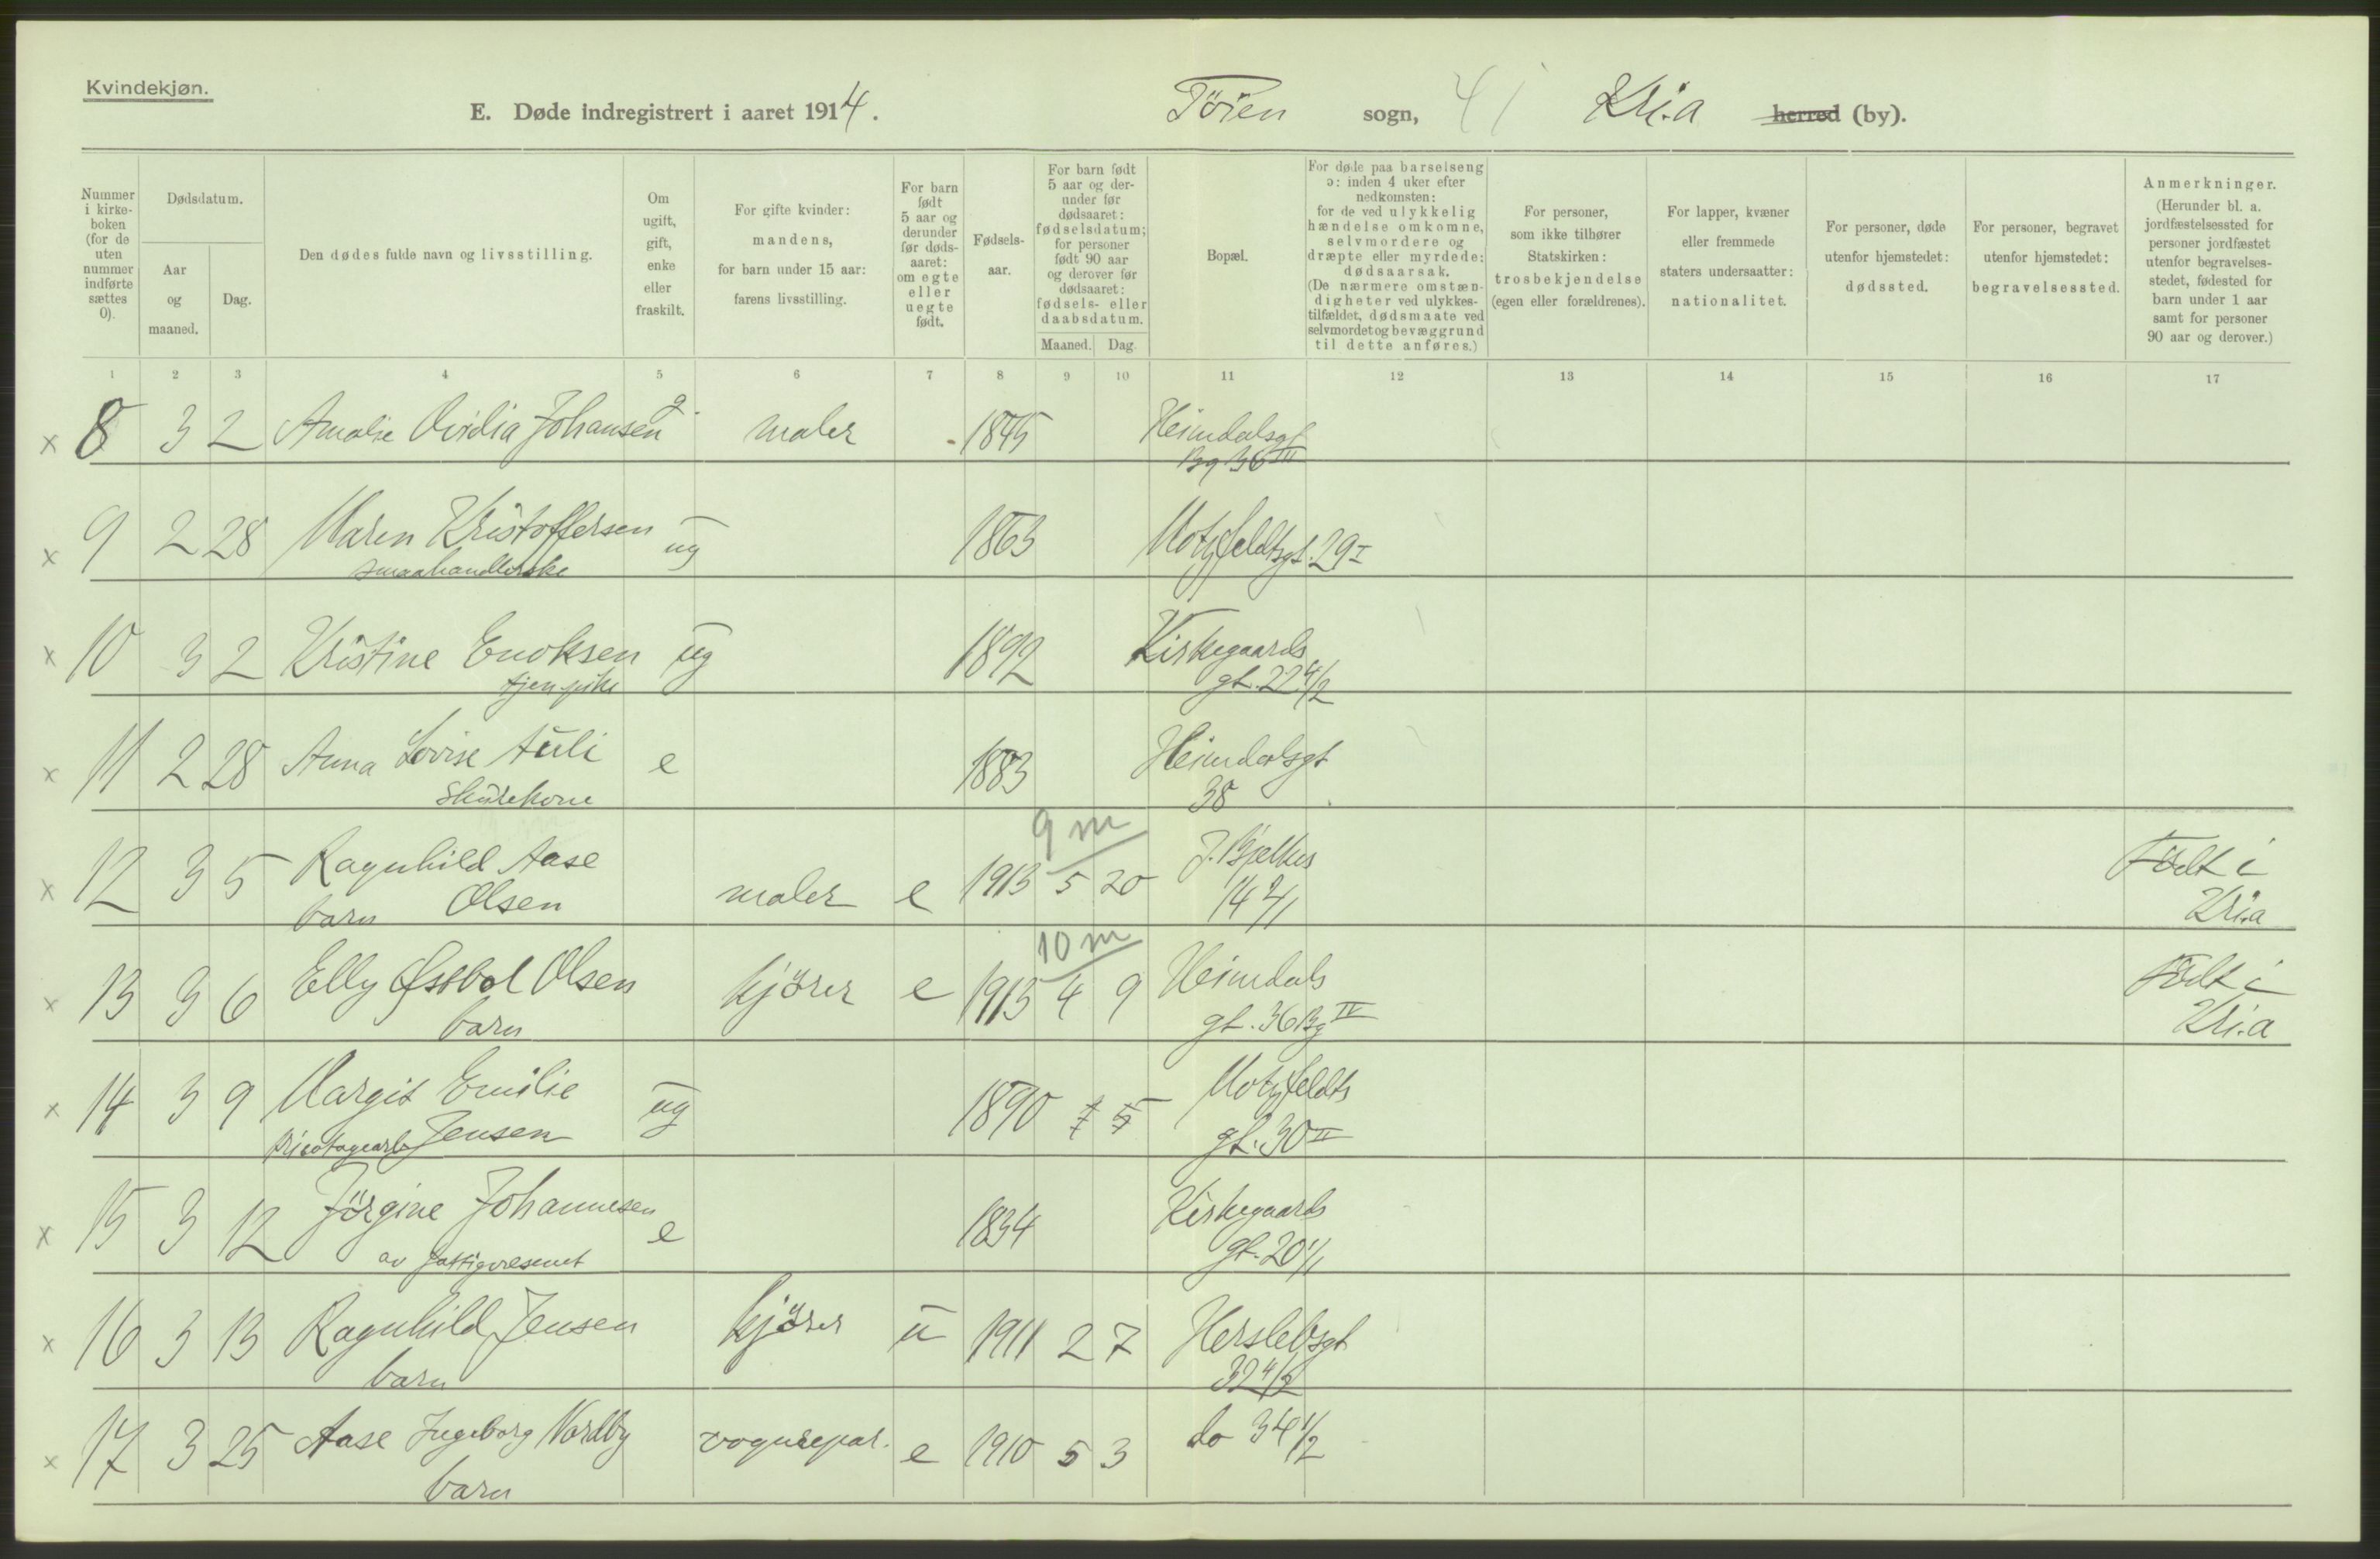 Kvindekjøn.
E. Døde indregistrert i aaret 1914. Töien sogn, 41 Kri.a herred (by).
Nummer i kirke-boken (for de uten nummer indførte sættes 0).
Dødsdatum.
Aar og maaned.
Dag.
Den dødes fulde navn og livsstilling.
Om ugift, gift, enke eller fraskilt.
For gifte kvinder: mandens, for barn under 15 aar: farens livsstilling.
For barn født 5 aar og derunder før døds-aaret: om egte eller uegte født.
Fødsels-aar.
For barn født 5 aar og der-under før dødsaaret: fødselsdatum; for personer født 90 aar og derover før dødsaaret: fødsels- eller daabsdatum.
Maaned. Dag.
Bopæl.
For døde paa barselseng ɔ: inden 4 uker efter nedkomsten: for de ved ulykkelig hændelse omkomne, selvmordere og dræpte eller myrdede: dødsaarsak. (De nærmere omstæn-digheter ved ulykkes-tilfældet, dødsmaate ved selvmordet og bevæggrund til dette anføres.)
For personer, som ikke tilhører Statskirken: trosbekjendelse (egen eller forældrenes).
For lapper, kvæner eller fremmede staters undersaatter: nationalitet.
For personer, døde utenfor hjemstedet: dødssted.
For personer, begravet utenfor hjemstedet: begravelsessted.
Anmerkninger. (Herunder bl. a. jordfæstelsessted for personer jordfæstet utenfor begravelses-stedet, fødested for barn under 1 aar samt for personer 90 aar og derover.)
1 2 3 4 5 6 7 8 9 10 11 12 13 14 15 16 17
x 8 3 2 Amalie Ovidia Johansen g. maler 1845 Heimdalsgt
Bg 36 III
x 9 2 28 Maren Kristoffersen ug 1863 Motzfeldtsgt. 29 I
smaahandlerske
x 10 3 2 Kristine Enoksen ug 1892 Kirkegaards
tjen.pike gt. 22 4/2
x 11 2 28 Anna Lovise Auli e 1883 Heimdalsgt
Skurekone 38
9 m
x 12 3 5 Ragnhild Aase maler e 1913 5 20 J. Bjelkes Födt i
barn Olsen 14 2/1 Kri.a
10 m
x 13 3 6 Elly Össbol Olsen kjörer e 1913 4 9 Heimdals Födt i
barn gt. 36 Bg IV Kri.a
x 14 3 9 Margit Emilie ug 1890 7 5 Motzfeldts
tricotagearb Jensen gt. 30 II
x 15 3 12 Jörgine Johannesen e 1834 Kirkegaards
av fattigvesenet gt. 20 1/1
x 16 3 13 Ragnhild Jensen kjörer u 1911 2 7 Herslebsgt
barn 32 4/2
x 17 3 25 Aase Ingeborg Nordby vognrepar. e 1910 5 3 do 34 1/2
barn